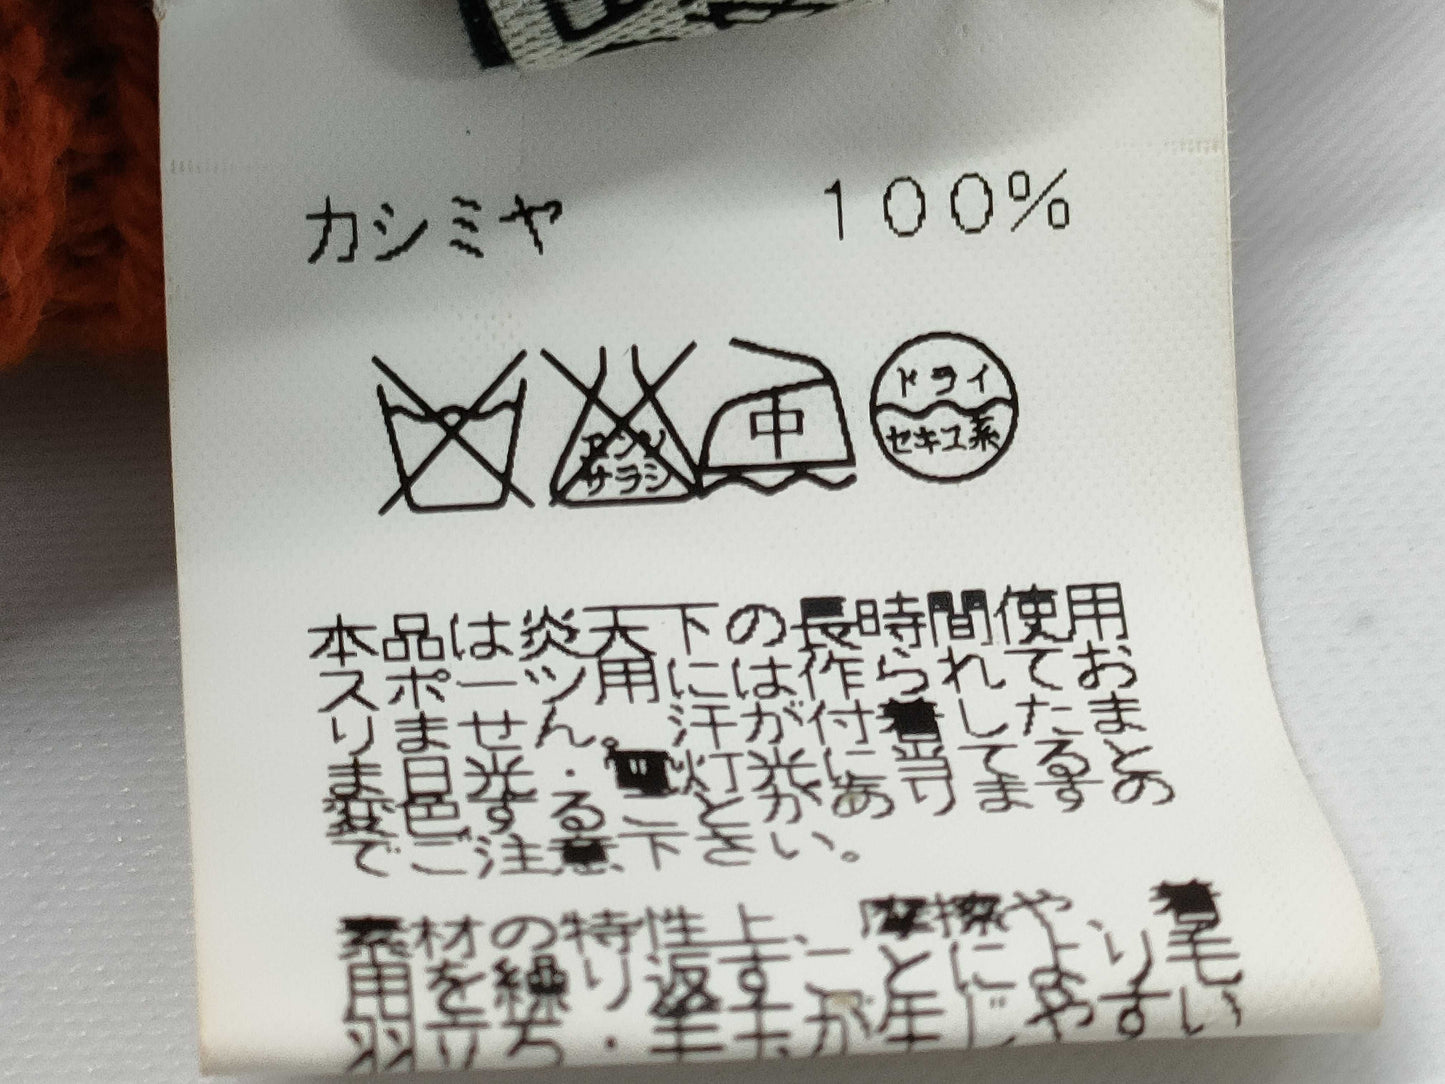 カシミヤ 100%
エンソ
サラシ
中
ドライ
セキユ系
本品は炎天下の長時間使用
スポーツ用には作られてお
りません。汗が付着したま
ま日光・蛍灯光に当てると
変色することがありますの
でご注意下さい。
素材の特性上、摩擦や、着
用を繰り返すことにより毛
羽立ち・毛玉が生じやすい